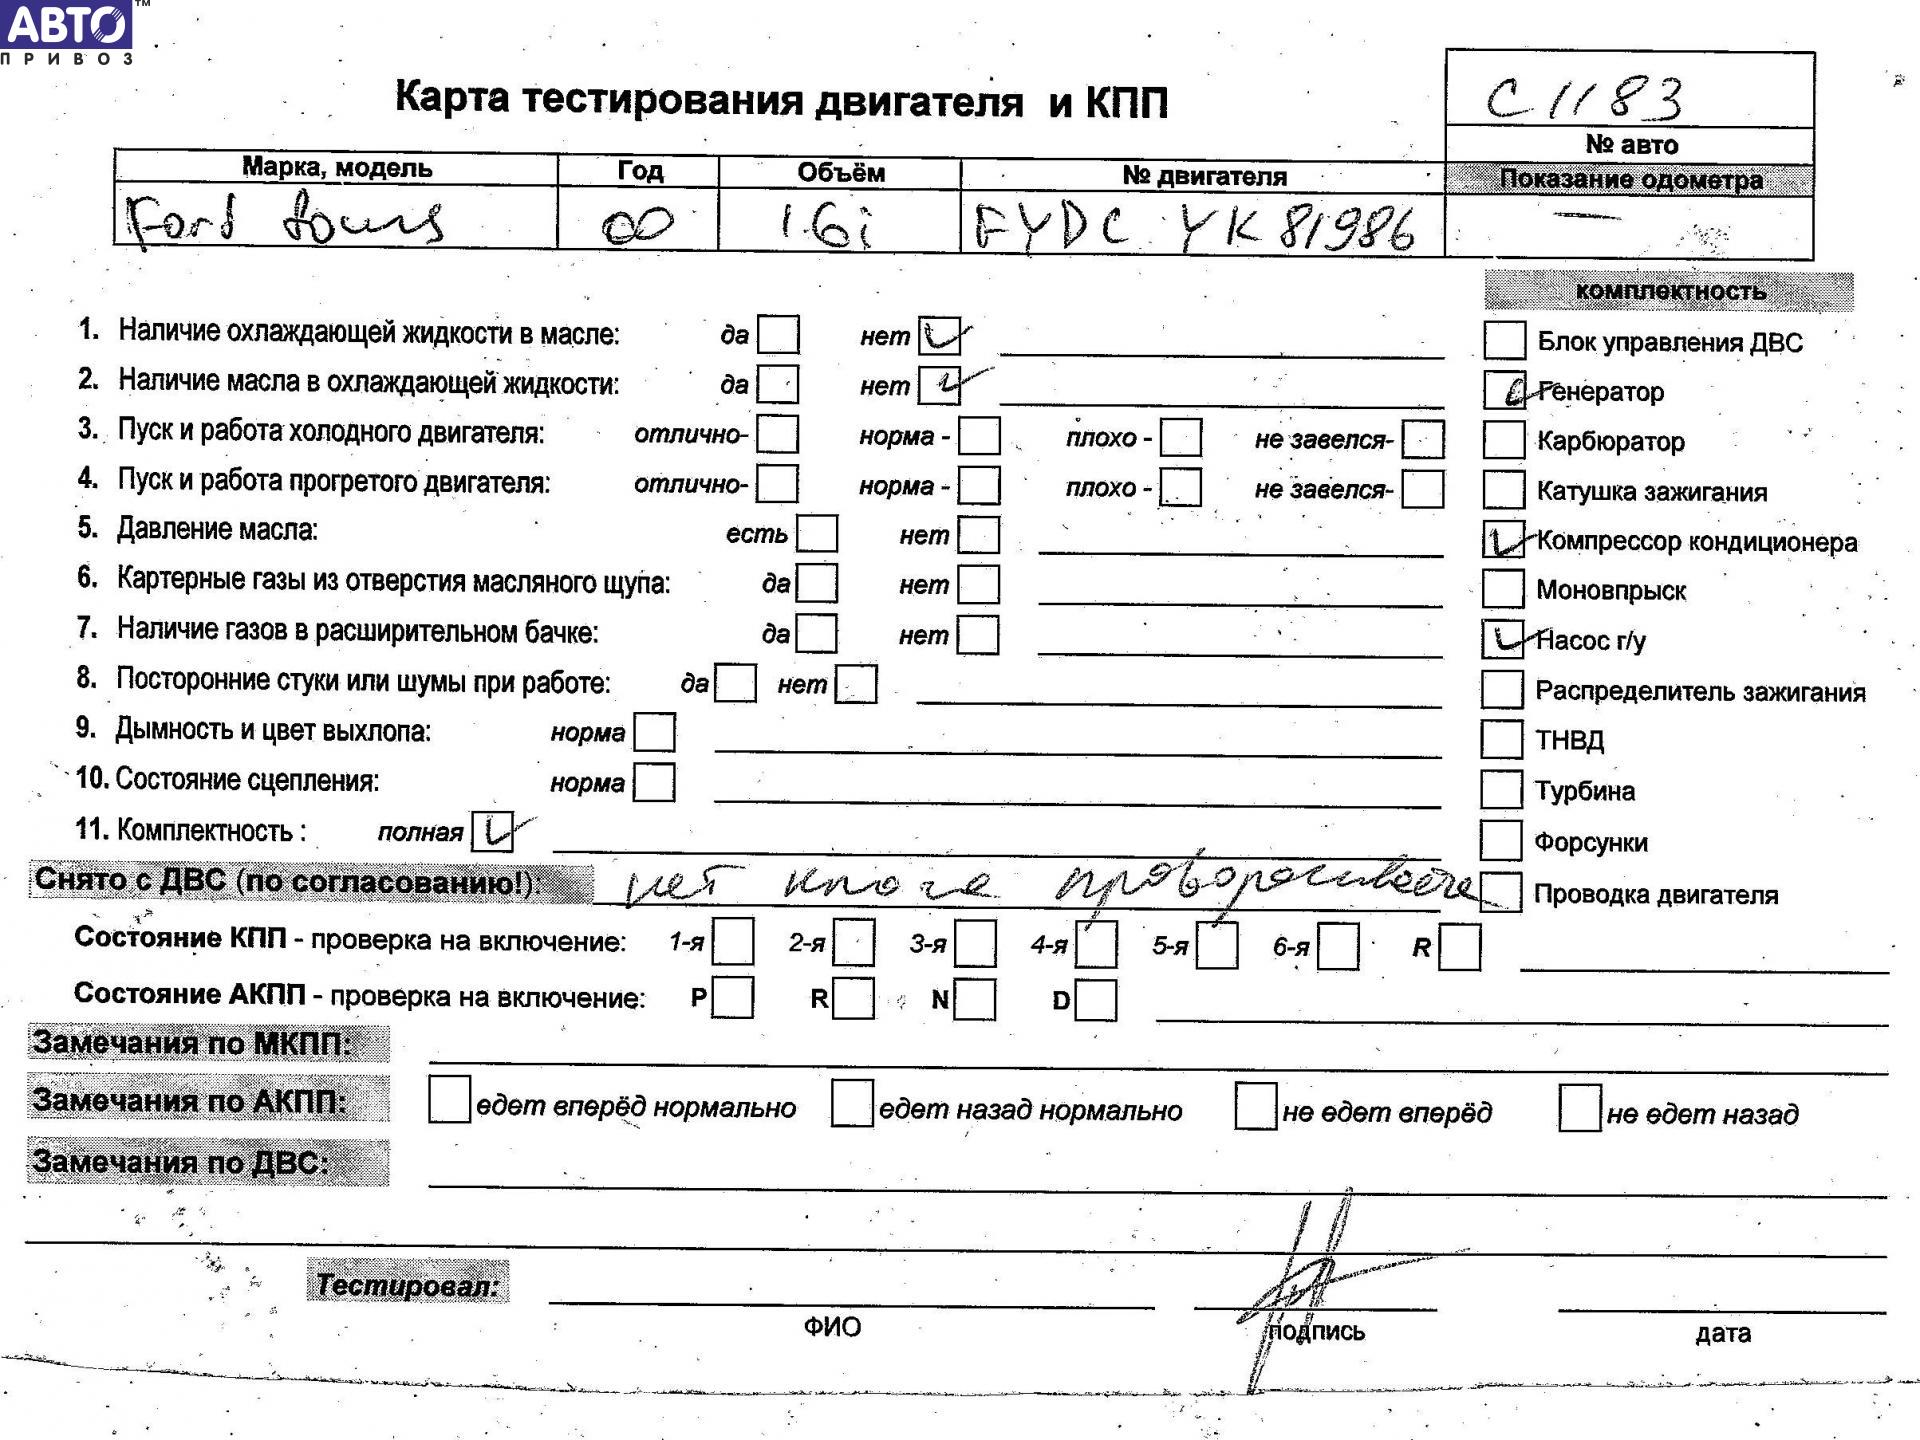 АВТО™
ПРИВОЗ
С1183
Карта тестирования двигателя и КПП
№ авто
Марка, модель Год Объём № двигателя Показание одометра
Ford 00 1.6i FYDC YK81986 —
комплектность
1. Наличие охлаждающей жидкости в масле: да нет Блок управления ДВС
2. Наличие масла в охлаждающей жидкости: да нет Генератор
3. Пуск и работа холодного двигателя: отлично- норма - плохо - не завелся- Карбюратор
4. Пуск и работа прогретого двигателя: отлично- норма - плохо - не завелся- Катушка зажигания
5. Давление масла: есть нет Компрессор кондиционера
6. Картерные газы из отверстия масляного щупа: да нет Моновпрыск
7. Наличие газов в расширительном бачке: да нет Насос г/у
8. Посторонние стуки или шумы при работе: да нет Распределитель зажигания
9. Дымность и цвет выхлопа: норма ТНВД
10. Состояние сцепления: норма Турбина
11. Комплектность : полная Форсунки
Снято с ДВС (по согласованию!): нет Проводка двигателя
Состояние КПП - проверка на включение: 1-я 2-я 3-я 4-я 5-я 6-я R
Состояние АКПП - проверка на включение: P R N D
Замечания по МКПП:
Замечания по АКПП: едет вперёд нормально едет назад нормально не едет вперёд не едет назад
Замечания по ДВС:
Тестировал:
ФИО подпись дата